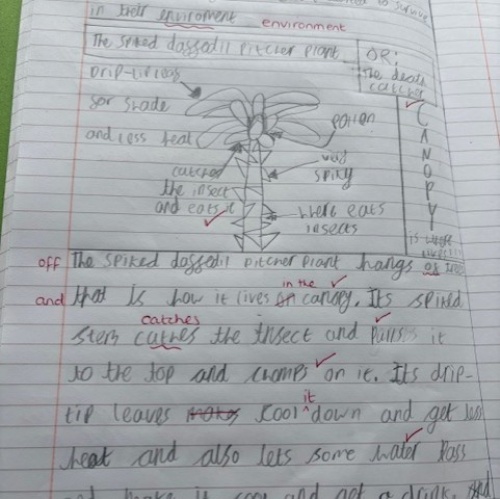 to survive
in their enviroment environment
The spiked daffodil pitcher plant
OR:
the death
catcher
Drip-tip leaf
for shade
and less heat
pollen
very
spiky
catches
the insect
and eats it
where eats
insects
C
A
N
O
P
Y
is where
off The spiked daffodil pitcher plant hangs of tree
and that is how it lives in the canopy. Its spiked
catches
stem cathes the insect and pulls it
to the top and chomps on it. Its drip-
it
tip leaves cool down and get less
heat and also lets some water pass
and get a drink. And